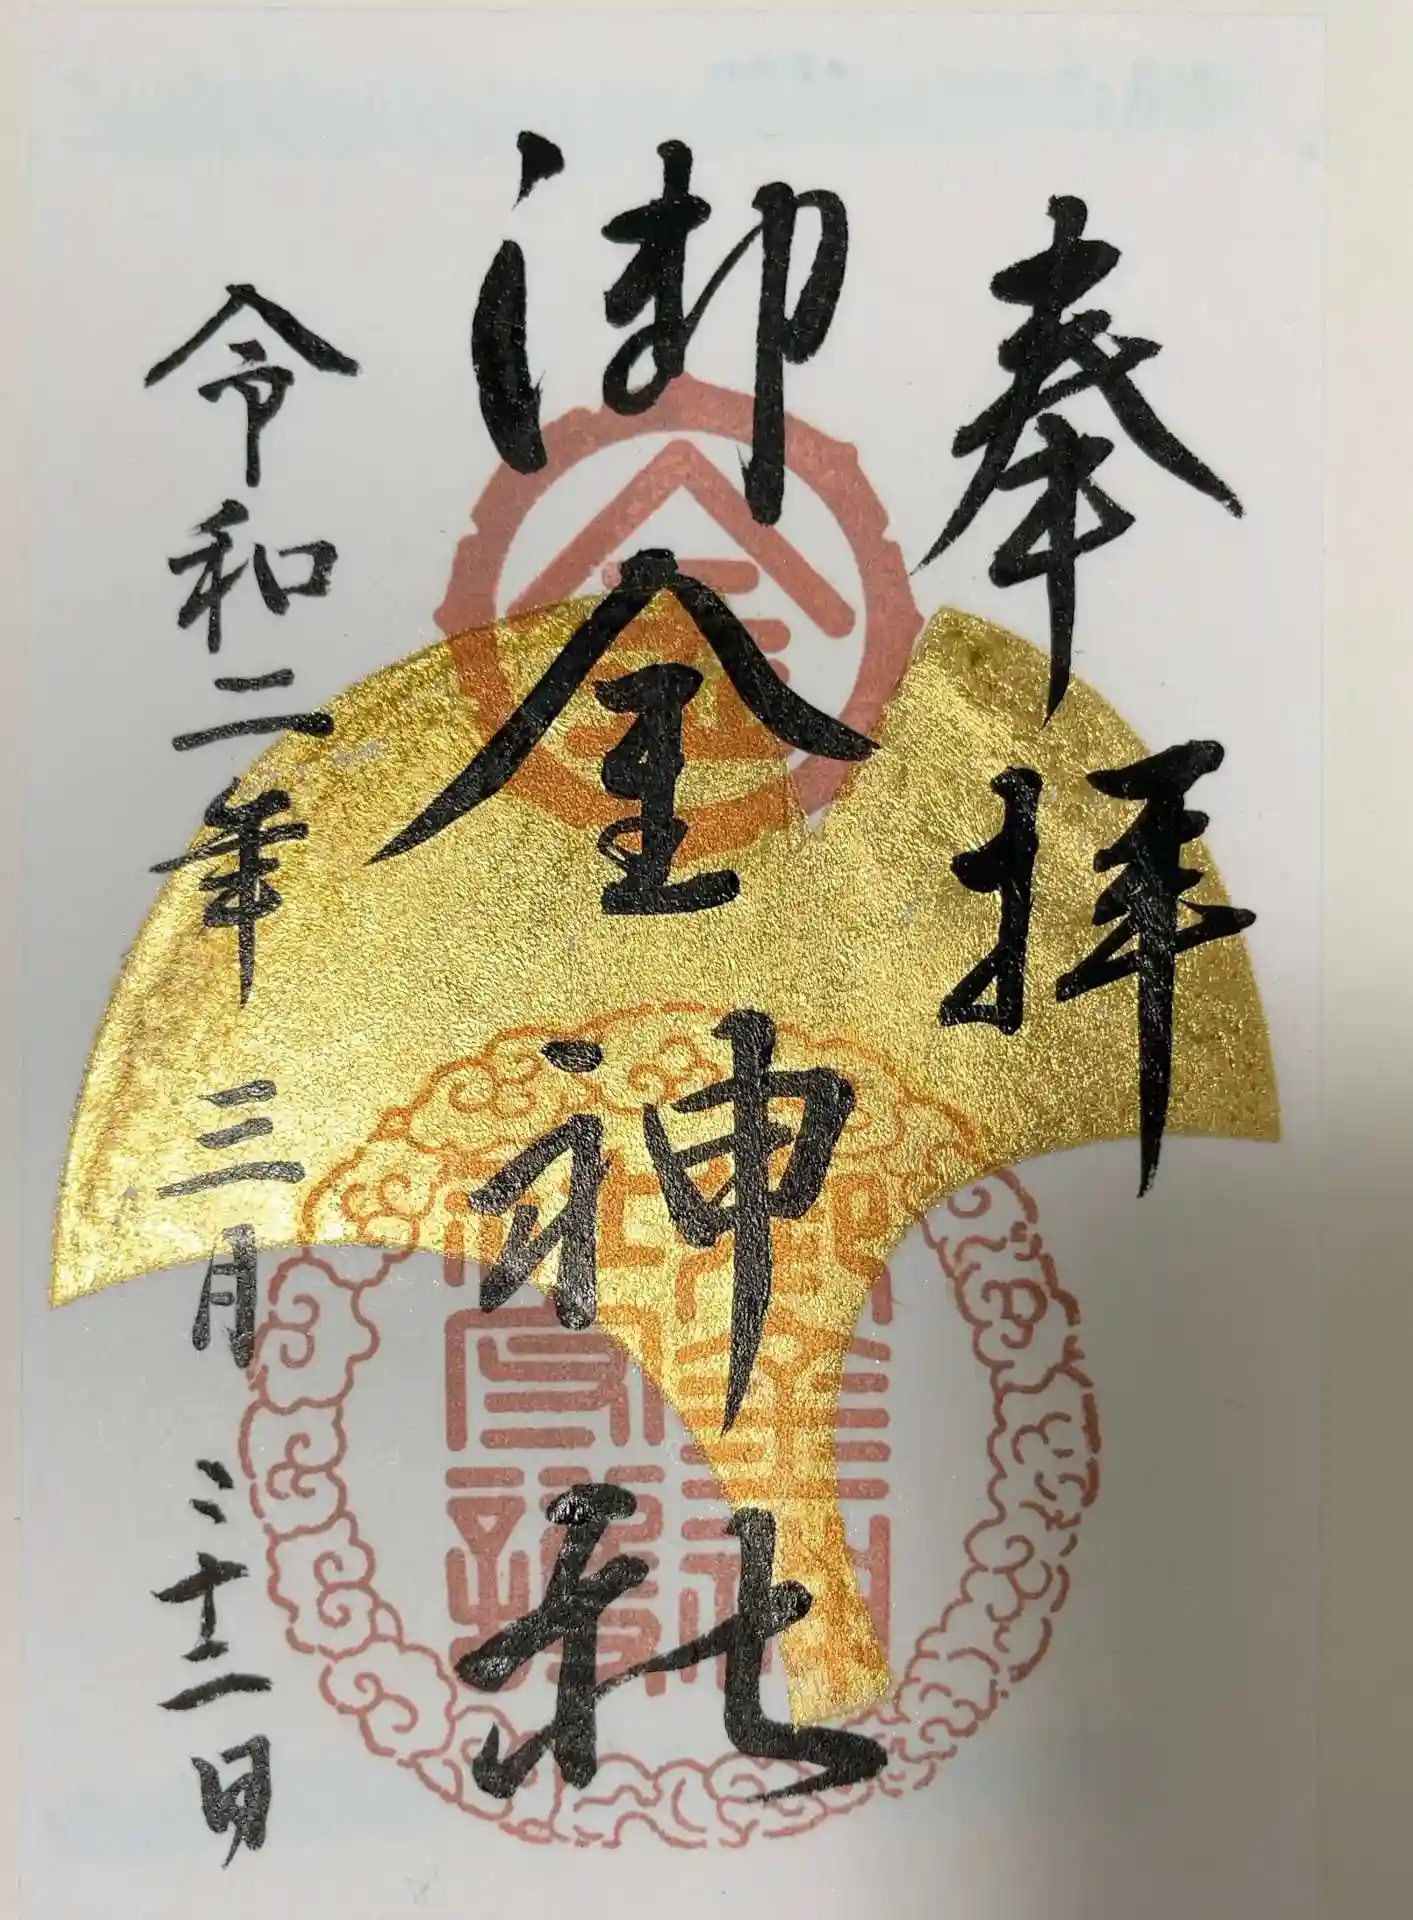 奉拝
御金神社
令和二年 三月 二十二日
金